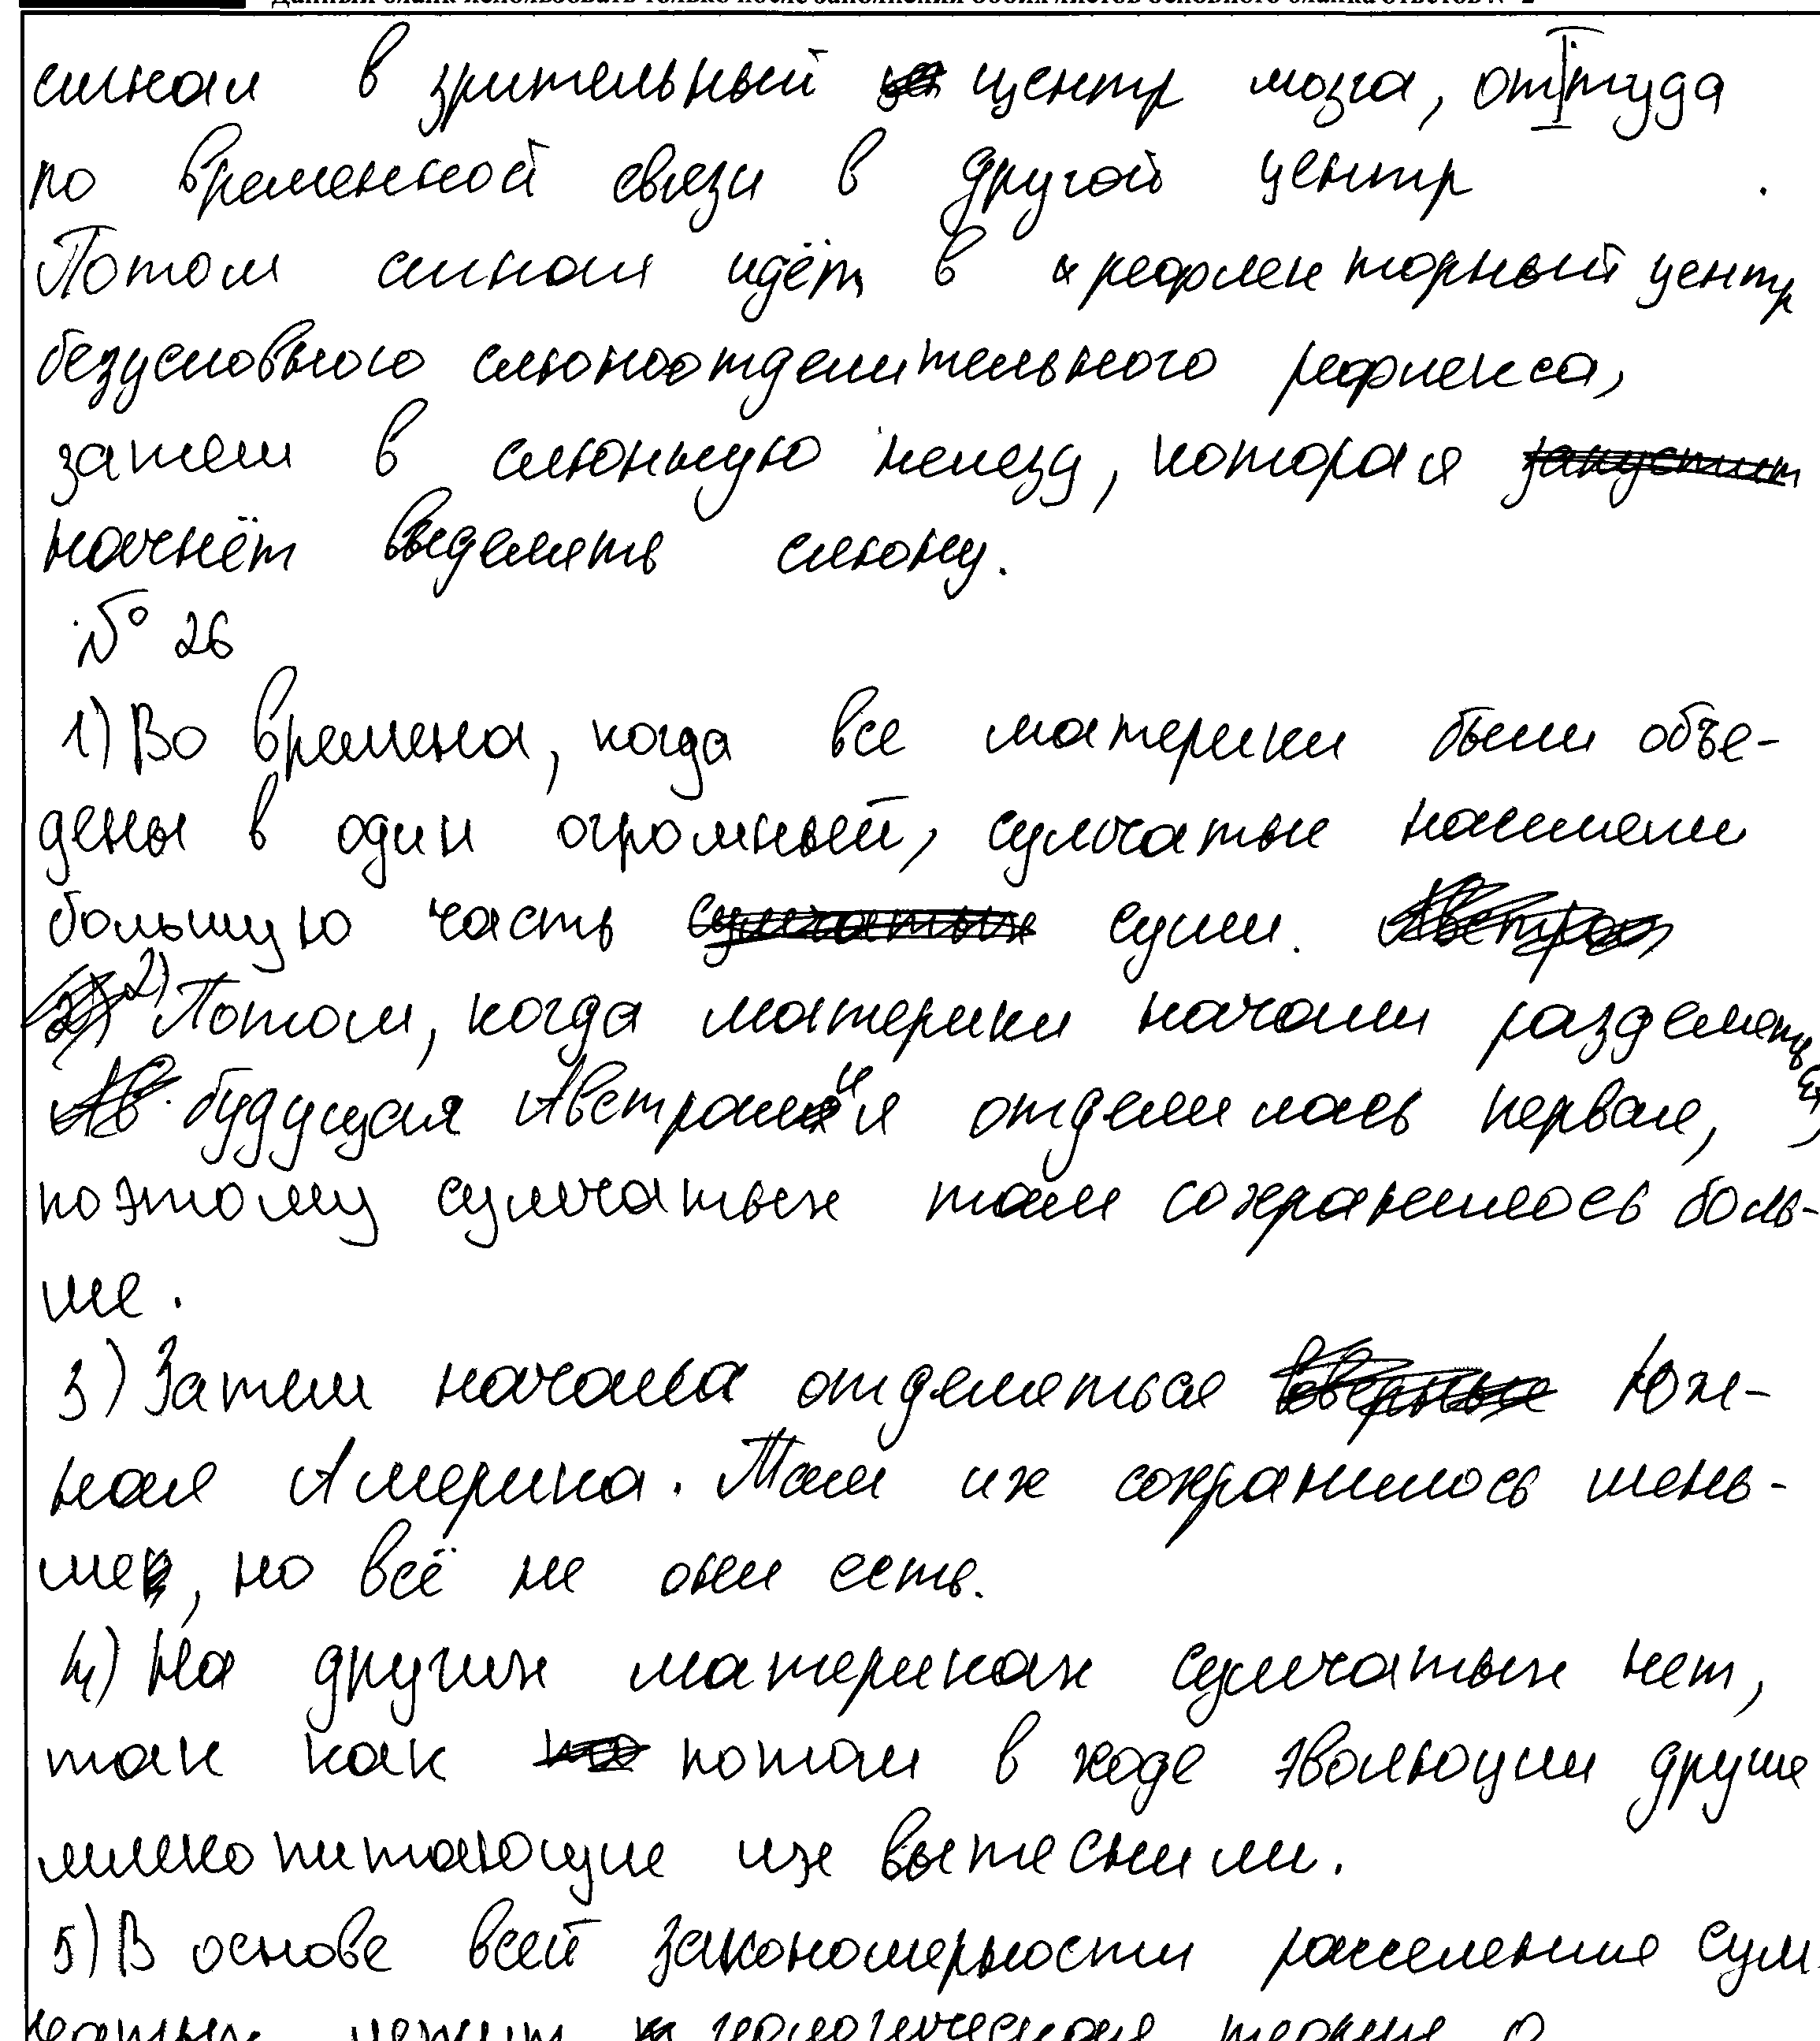 Данный бланк использовать только после заполнения обоих листов основного бланка ответов № 2
сигнал в зрительный центр мозга, оттуда
по временной связи в другой центр .
Потом сигнал идёт в рефлекторный центр
безусловного слюноотделительного рефлекса,
затем в слюнную железу, которая запустит
начнёт выделять слюну.
№ 26
1) Во времена, когда все материки были объе-
дены в один огромный, сумчатые населяли
большую часть сумчатых суши. Австрал
2) 2) Потом, когда материки начали разделяться,
Ав будущая Австралия отделилась первая,
поэтому сумчатых там сохранилось боль-
ше.
3) Затем начала отделяться Юж-
ная Америка. Там их сохранилось мень-
ше, но всё же они есть.
4) На других материках сумчатых нет,
так как по потом в ходе эволюции другие
млекопитающие их вытеснили.
5) В основе всей закономерности расселения сум
чатых лежит геологическая теория о